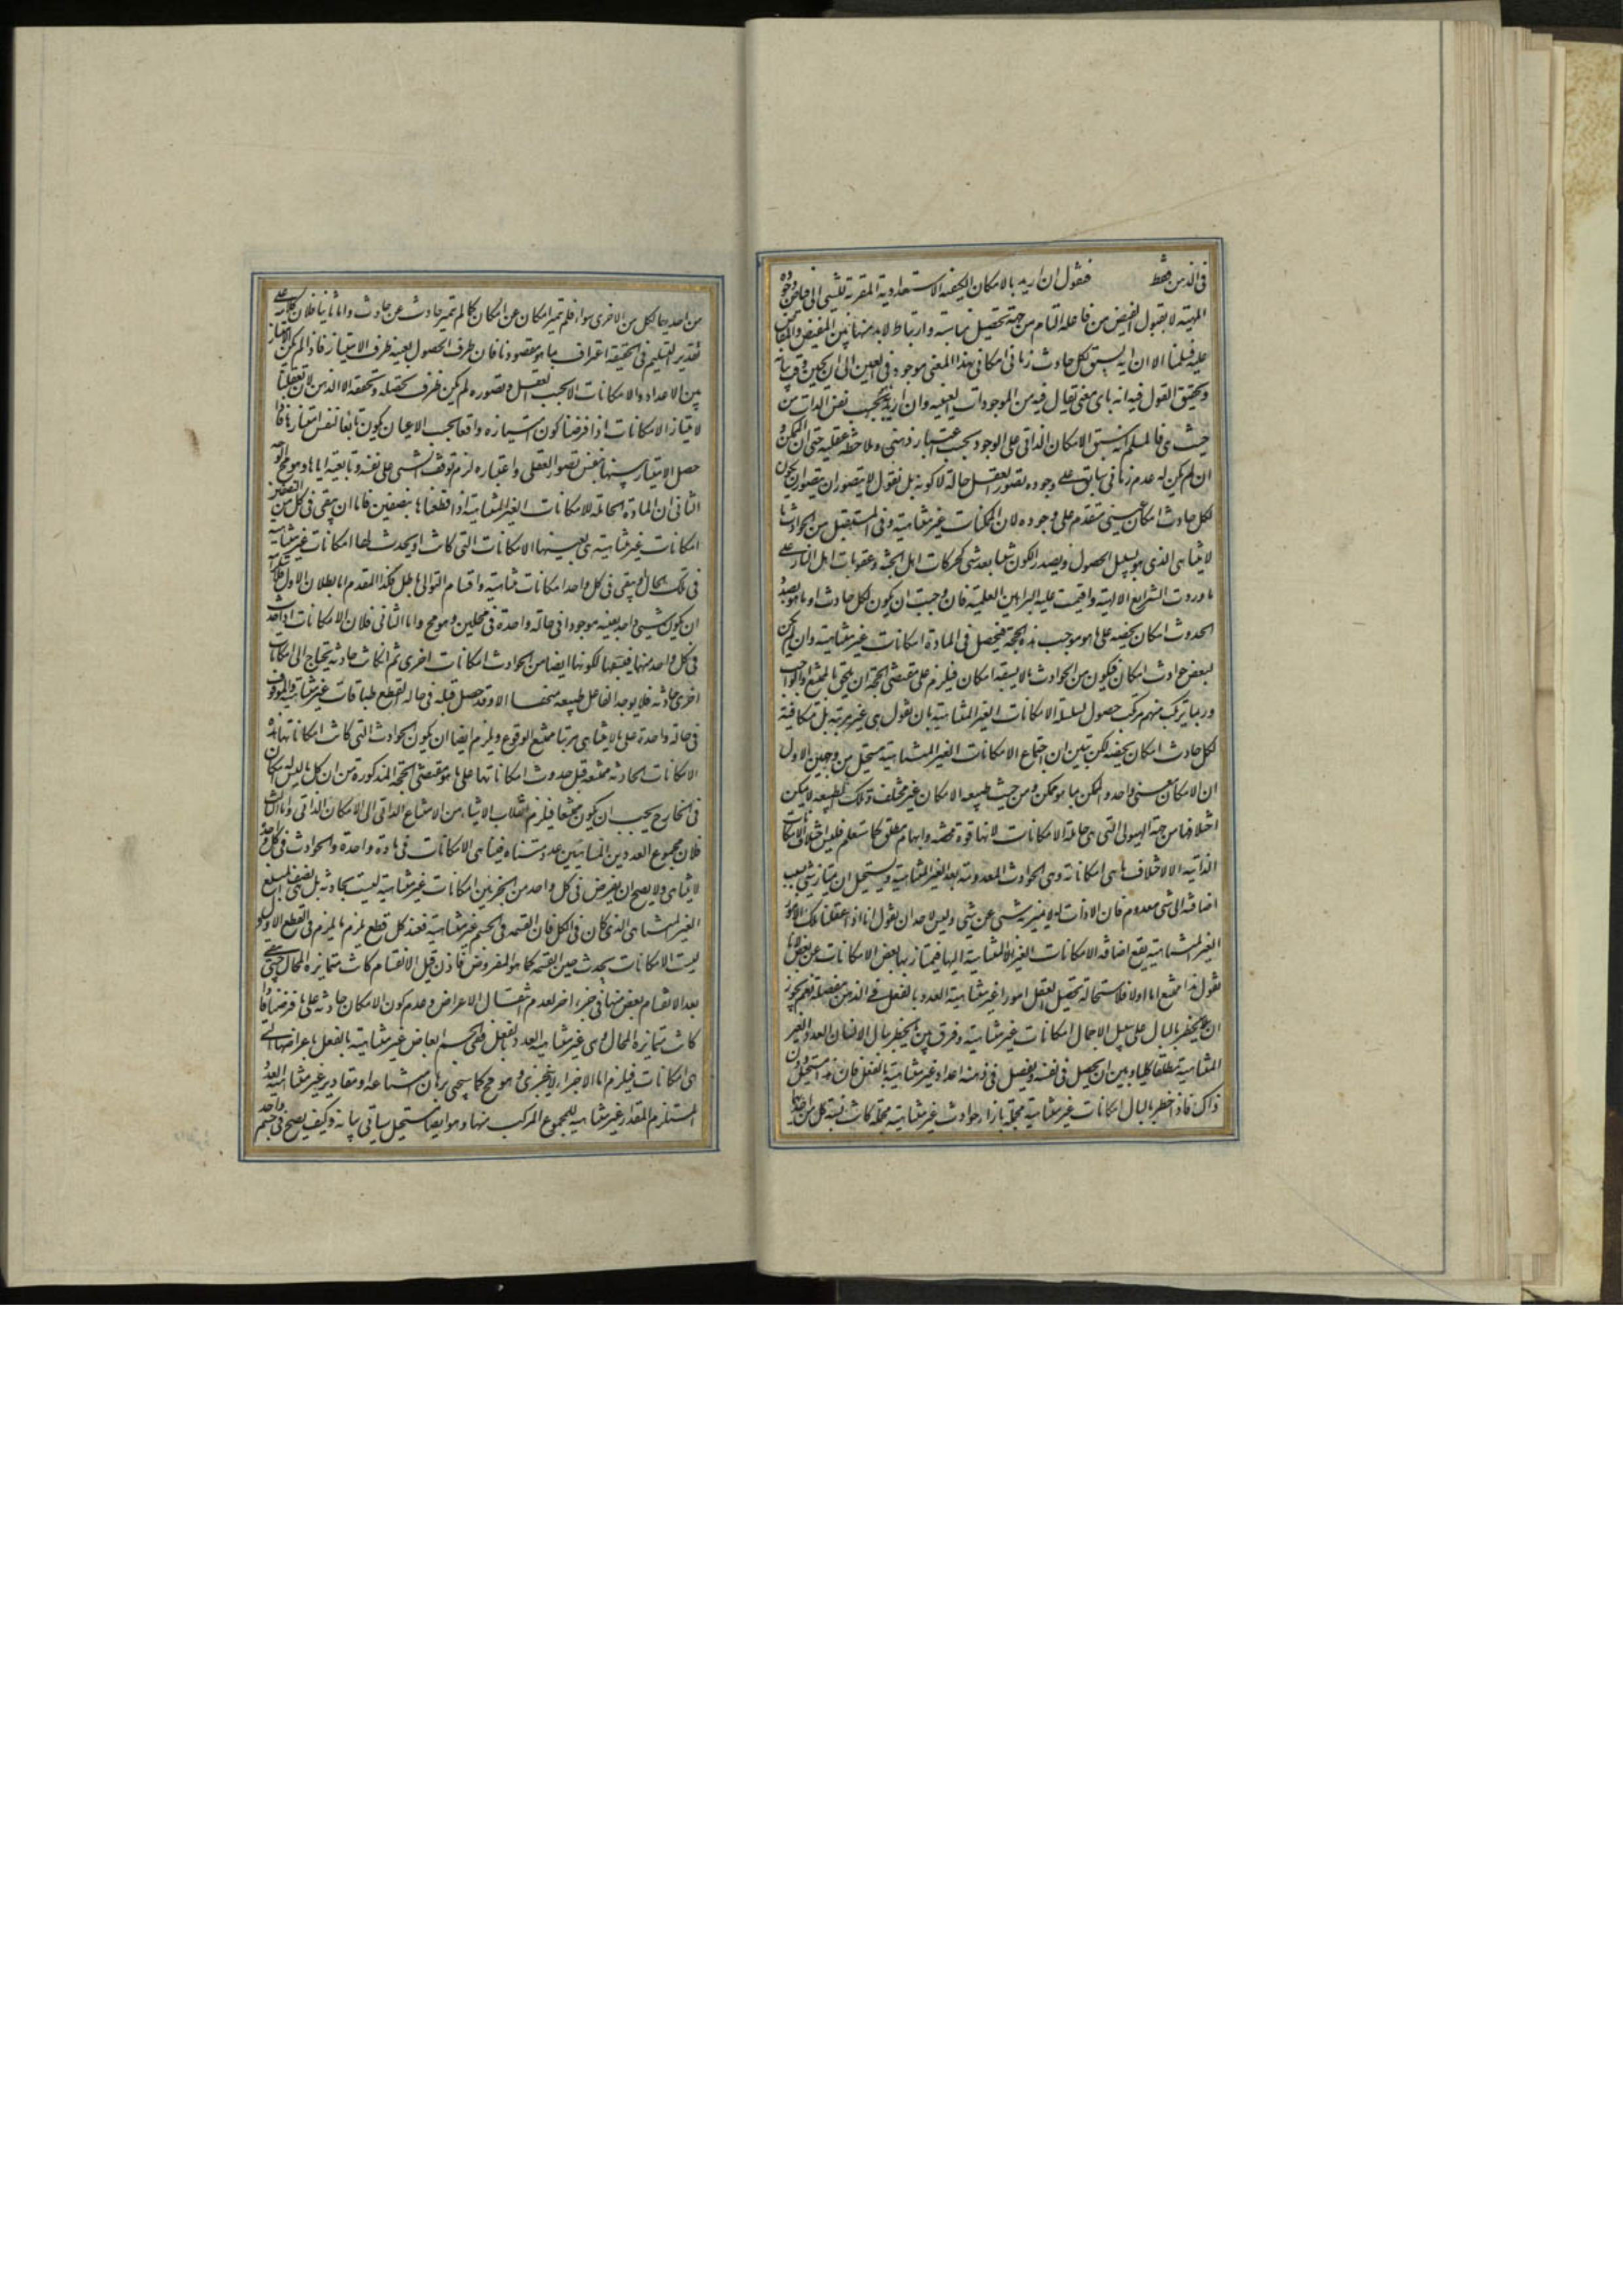 في الذهن فقط فنقول ان اريد بالامكان الكيفية الاستعدادية المقربة للشيء الى فياض وجوده
المهيئة لا بقبول الفيض من فاعله التام من جهة تحصيل مناسبة وارتباط لا بد منها بين المفيض والمفاض
عليه فيلمنا الا ان يسبق لكل حادث زماني امكان بهذا المعنى موجود في العين الى ان يحين وقت بيانه
وتحقيق القول فيه انه باى معنى يقال فيه من الموجودات العينية وان اريد بحسب نفس الذات من
حيث هي فالمسلم انه يسبق الامكان الذاتي على الوجود بحسب اعتبار ذهني وملاحظة عقلية حتى ان الممكن و
ان لم يكن له عدم زماني سابق على وجوده يتصور العقل حاله لا كونه بل نقول لا يتصور ان يتصور ان يكون
لكل حادث امكان عيني متقدم على وجوده لان الممكنات غير متناهية وفي المستقبل من الحوادث ما
لا يتناهى الذي هو بسبيل الحصول وبصدد الكون شيئا بعد شيء كحركات اهل الجنة وعقوبات اهل النار على
ما وردت الشرايع الالهية واقيمت عليه البراهين العلمية فان وجبت ان يكون لكل حادث او ما هو بصدد
الحدوث امكان يخصه على ما هو موجب هذه الحجة فيحصل في المادة امكانات غير متناهية وان لم يكن
لبعض حوادث امكان فيكون من الحوادث ما لا يسبقه امكان فيلزم على مقتضى الحجة ان يلحق بالممتنع او الواجب
وربما يرتكب منهم مرتكب حصول سلسلة الامكانات الغير المتناهية بان نقول هي غير مرتبة بل متكافية
لكل حادث امكان يخصه لكن تبين ان اجتماع الامكانات الغير المتناهية مستحيل من وجهين الاول
ان الامكان معنى واحد والممكن بما هو ممكن ومن حيث طبيعة الامكان غير مختلف وتلك الطبيعة لا يمكن
اختلافها من جهة الهيولى التي هي حاملة الامكانات لانها قوة محضة وابهام مطلق كما ستعلم فليس اختلاف الامكانات
الذاتية الا لاختلاف ما هي امكاناته وهي الحوادث المعدومة بعد الغير المتناهية ويستحيل ان يمتاز شيء بسبب
اضافته الى شيء معدوم فان الاذات له لا يميز به شيء عن شيء وليس لاحد ان يقول انا اذا عقلنا تلك الامور
الغير المتناهية يقع اضافة الامكانات الغير المتناهية اليها فيمتاز بها بعض الامكانات عن بعض لانا
نقول هذا ممتنع اما اولا فلاستحالة تحصيل العقل امورا غير متناهية العدد بالفعل في الذهن مفصلة نعم يجوز
ان يخطر بالبال على سبيل الاجمال امكانات غير متناهية وفرق بين ان يخطر ببال الانسان العدد الغير
المتناهية مطلقا كليا وبين ان يحصل في نفسه ويفصل في ذهنه اعداد غير متناهية بالفعل فان هذا مستحيل دون
ذاك فاذا خطر بالبال امكانات غير متناهية مجملة بازاء حوادث غير متناهية مجملة كانت نسبة كل من احاد
من احديهما لكل من الاخرى سواء فلم تميز امكان عن امكان كما لم تميز حادث عن حادث واما ثانيا فلان كلامنا على
تقدير التسليم في الحقيقة اعتراف بما هو مقصودنا فان ظرف الحصول بعينه ظرف الامتياز فاذا لم يكن الامتياز
بين الاعداد والامكانات الا بحسب العقل وتصوره لم يكن ظرف تحصله وتحققه الا الذهن لان تعقلنا
لامتياز الامكانات اذا فرضنا كون امتيازه واقعا بحسب الاعيان يكون تابعا لنفس امتيازها فاذا
حصل الامتياز بينها بنفس تصور العقل واعتباره لزم توقف الشيء على نفسه وتابعيته اياها وهو مح الوجه
الثاني ان المادة الحاملة للامكانات الغير المتناهية اذا قطعناها بنصفين فاما ان يبقى في كل من النصفين
امكانات غير متناهية هي بعينها الامكانات التي كانت او يحدث لها امكانات غير متناهية
في تلك الحال او يبقى في كل واحد امكانات متناهية واقسام التوالي باطل فكذا المقدم اما بطلان الاول فلاستلزامه
ان يكون شيء واحد بعينه موجودا في حالة واحدة في محلين وهو مح واما الثاني فلان الامكانات اذا حدثت
في كل واحد منهما فيسبقها لكونها ايضا من الحوادث امكانات اخرى ثم ان كانت حادثة يحتاج الى امكانات
اخرى حادثة فلا يوجد الفاعل طبيعة منحفا الا وقد حصل قبله في حالة القطع طبقات غير متناهية والموقوف
في حالة واحدة على ما لا يتناهى مرتبا ممتنع الوقوع ويلزم ايضا ان يكون الحوادث التي كانت امكاناتها هذه
الامكانات الحادثة ممتنعة قبل حدوث امكاناتها على ما هو مقتضى الحجة المذكورة من ان كل ما ليس له امكان
في الخارج يجب ان يكون ممتنعا فيلزم انقلاب الاشياء من الامتناع الذاتي الى الامكان الذاتي واما الثالث
فلان مجموع العددين المتناهيين عدد متناه فيتناهى الامكانات في مادة واحدة والحوادث في كل واحد
لا يتناهى ولا يصح ان يفرض في كل واحد من الجزئين امكانات غير متناهية ليست بحادثة بل هي نصف المبلغ
الغير المتناهى الذي كان في الكل فان القسمة في الجسم غير متناهية فعند كل قطع يلزم ما يلزم في القطع الاول ولو
ليست الامكانات يحدث حين القسمة كما هو المفروض فاذن قبل الانقسام كانت متمايزة المحال حتى يتعين
بعد الانقسام بعض منها في جزء اخر لعدم انتقال الاعراض وعدم كون الامكان حادثة على ما فرضنا فاذا
كانت متمايزة المحال وهي غير متناهية العدد بالفعل ففي الجسم ابعاض غير متناهية بالفعل باعراضها التي
هي امكانات فيلزم اما الاجزاء لا يتجزى وهو مح كما سيجئ برهان امتناعه او مقادير غير متناهية العدد
المستلزم المقدار غير متناهية للمجموع المركب منها وهو ايضا مستحيل سياتي بيانه وكيف يصح في جسم واحد